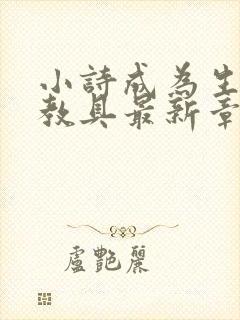 小詩成為生
教具最新章
盧艷麗